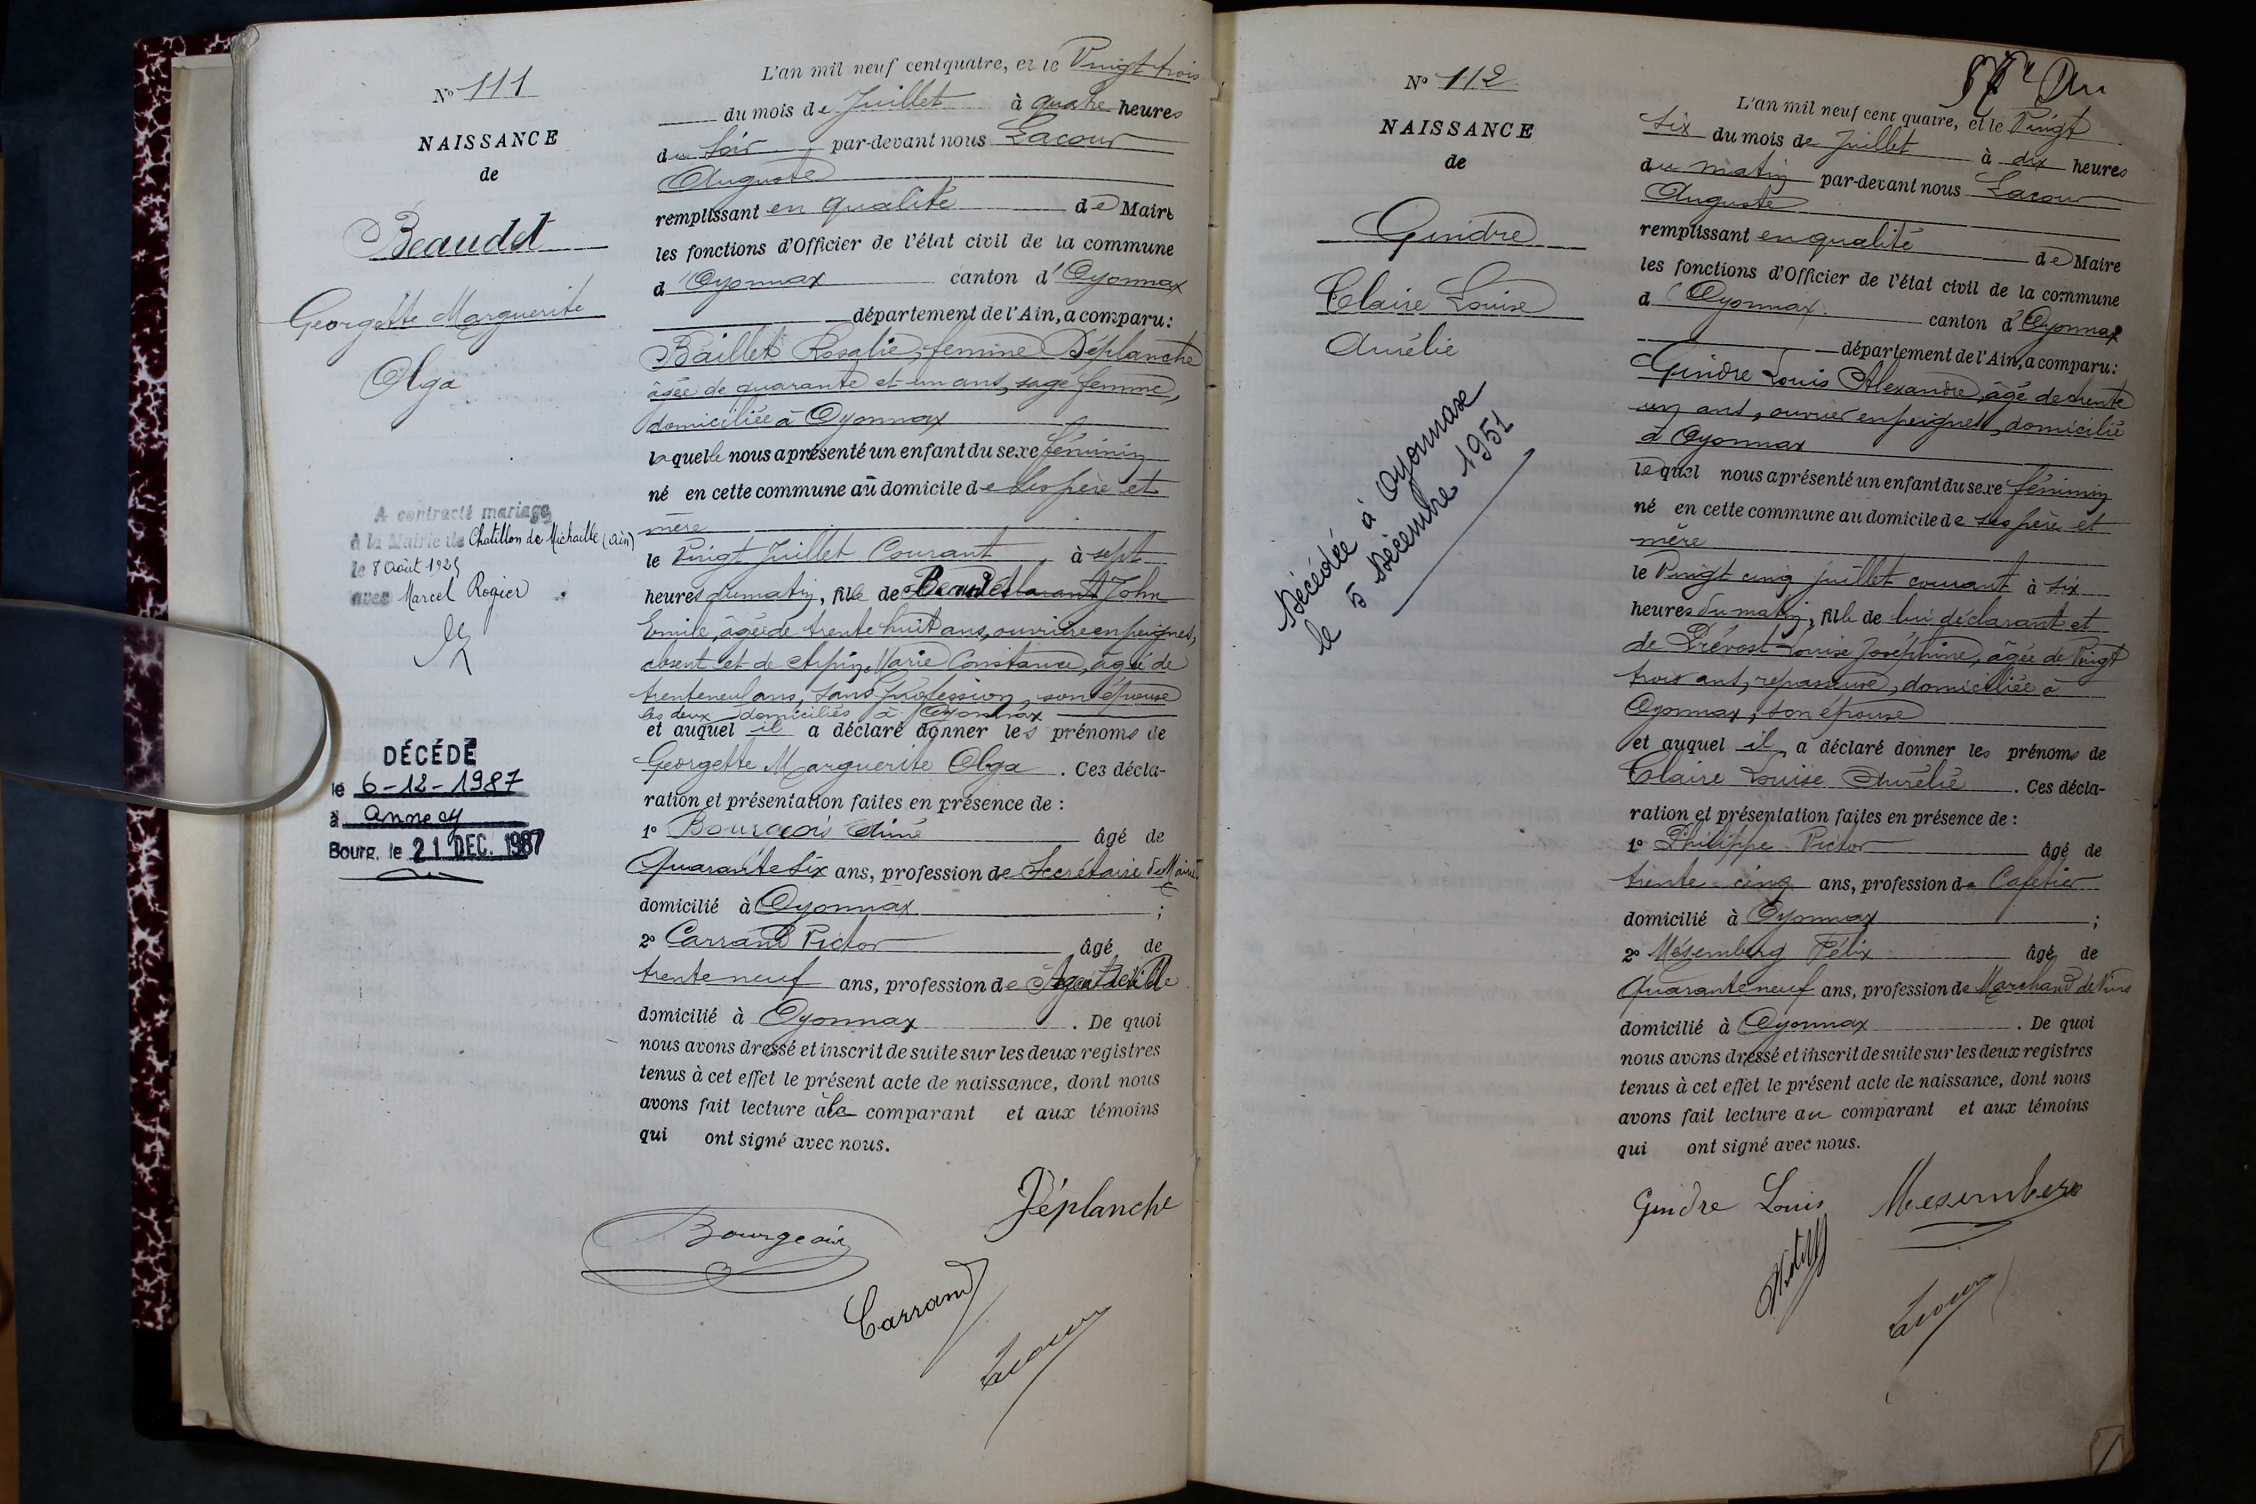 N° 111
NAISSANCE
de
Beaudet
Georgette Marguerite
Olga
A contracté mariage
à la Mairie de Chatillon de Michaille (Ain)
le 8 Août 1925
avec Marcel Rogier
DÉCÉDÉ
le 6-12-1987
à Annecy
Bourg, le 21 DEC. 1987
L'an mil neuf cent quatre, et le Vingt trois
du mois de Juillet à quatre heures
du soir par-devant nous Lacour
Auguste
remplissant en qualité de Maire
les fonctions d'Officier de l'état civil de la commune
d'Oyonnax canton d'Oyonnax
département de l'Ain, a comparu :
Baillet Rosalie, femme Déplanche
âgée de quarante et un ans, sage femme,
domiciliée à Oyonnax
laquelle nous a présenté un enfant du sexe féminin
né en cette commune au domicile de ses père et
mère
le Vingt Juillet Courant à sept
heures du matin, fille de Beaudet John
Emile, âgé de trente huit ans, ouvrier en peignes,
absent et de Arpin Marie Constance, âgée de
trente neuf ans, sans profession, son épouse
les deux domiciliés à Oyonnax
et auquel il a déclaré donner les prénoms de
Georgette Marguerite Olga. Ces décla-
ration et présentation faites en présence de :
1° Bourgeois Aimé âgé de
Quarante six ans, profession de Secrétaire de Mairie
domicilié à Oyonnax ;
2° Carrand Victor âgé de
trente neuf ans, profession de Agent de ville
domicilié à Oyonnax. De quoi
nous avons dressé et inscrit de suite sur les deux registres
tenus à cet effet le présent acte de naissance, dont nous
avons fait lecture à la comparant et aux témoins
qui ont signé avec nous.
Déplanche
Bourgeois
Carrand
Lacour
N° 112
NAISSANCE
de
Gindre
Claire Louise
Aurélie
Décédée à Oyonnax
le 5 Décembre 1951
L'an mil neuf cent quatre, et le Vingt
six du mois de Juillet à dix heures
du matin par-devant nous Lacour
Auguste
remplissant en qualité de Maire
les fonctions d'Officier de l'état civil de la commune
d'Oyonnax canton d'Oyonnax
département de l'Ain, a comparu :
Gindre Louis Alexandre, âgé de trente
un ans, ouvrier en peignes, domicilié
à Oyonnax
lequel nous a présenté un enfant du sexe féminin
né en cette commune au domicile de ses père et
mère
le Vingt cinq juillet courant à six
heures du matin, fille de lui déclarant et
de Prévost Louise Joséphine, âgée de Vingt
trois ans, repasseuse, domiciliée à
Oyonnax, son épouse
et auquel il a déclaré donner les prénoms de
Claire Louise Aurélie. Ces décla-
ration et présentation faites en présence de :
1° Philippe Victor âgé de
trente cinq ans, profession de Cafetier
domicilié à Oyonnax ;
2° Mésemberg Félix âgé de
Quarante neuf ans, profession de Marchand de Vins
domicilié à Oyonnax. De quoi
nous avons dressé et inscrit de suite sur les deux registres
tenus à cet effet le présent acte de naissance, dont nous
avons fait lecture au comparant et aux témoins
qui ont signé avec nous.
Gindre Louis Mesemberg
Lacour